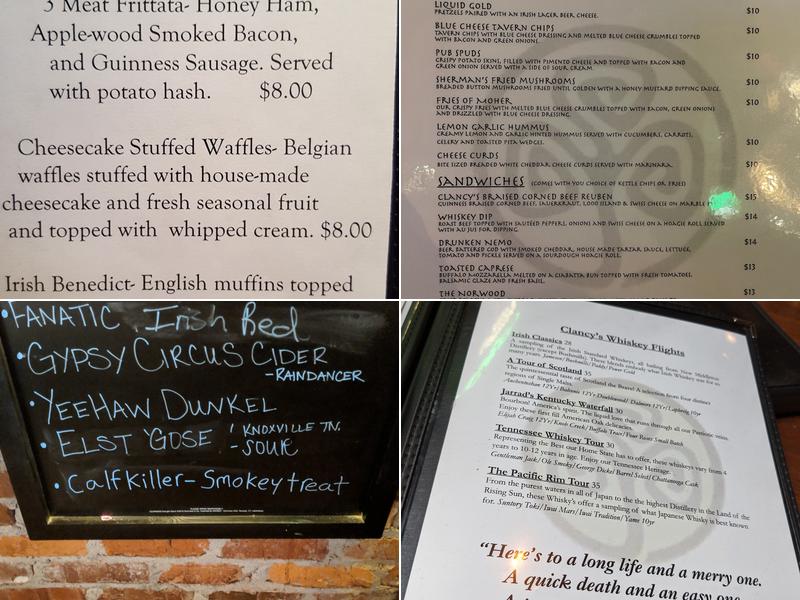 3 Meat Frittata- Honey Ham,
Apple-wood Smoked Bacon,
and Guinness Sausage. Served
with potato hash. $8.00
Cheesecake Stuffed Waffles- Belgian
waffles stuffed with house-made
cheesecake and fresh seasonal fruit
and topped with whipped cream. $8.00
Irish Benedict- English muffins topped
LIQUID GOLD $10
PRETZELS PAIRED WITH AN IRISH LAGER BEER CHEESE.
BLUE CHEESE TAVERN CHIPS $10
TAVERN CHIPS WITH BLUE CHEESE DRESSING AND MELTED BLUE CHEESE CRUMBLES TOPPED
WITH BACON AND GREEN ONIONS.
PUB SPUDS $10
CRISPY POTATO SKINS, FILLED WITH PIMENTO CHEESE AND TOPPED WITH BACON AND
GREEN ONION SERVED WITH A SIDE OF SOUR CREAM
SHERMAN'S FRIED MUSHROOMS $10
BREADED BUTTON MUSHROOMS FRIED UNTIL GOLDEN WITH A HONEY MUSTARD DIPPING SAUCE.
FRIES OF MOHER $10
OUR CRISPY FRIES WITH MELTED BLUE CHEESE CRUMBLES TOPPED WITH BACON, GREEN ONIONS
AND DRIZZLED WITH BLUE CHEESE DRESSING.
LEMON GARLIC HUMMUS
CREAMY LEMON AND GARLIC HINTED HUMMUS SERVED WITH CUCUMBERS, CARROTS,
CELERY AND TOASTED PITA WEDGES. $10
CHEESE CURDS
BITE SIZED BREADED WHITE CHEDDAR CHEESE CURDS SERVED WITH MARINARA. $10
SANDWICHES (COMES WITH YOU CHOICE OF KETTLE CHIPS OR FRIES)
CLANCY'S BRAISED CORNED BEEF REUBEN $15
GUINNESS BRAISED CORNED BEEF, SAUERKRAUT, 1,000 ISLAND & SWISS CHEESE ON MARBLE
WHISKEY DIP $14
ROAST BEEF TOPPED WITH SAUTÉED PEPPERS, ONIONS AND SWISS CHEESE ON A HOAGIE ROLL SERVED
WITH AU JUS FOR DIPPING.
DRUNKEN NEMO $14
BEER BATTERED COD WITH SMOKED CHEDDAR, HOUSE MADE TARTAR SAUCE, LETTUCE,
TOMATO AND PICKLE SERVED ON A SOURDOUGH HOAGIE ROLL.
TOASTED CAPRESE $13
BUFFALO MOZZARELLA MELTED ON A CIABATTA BUN TOPPED WITH FRESH TOMATOES,
BALSAMIC GLAZE AND FRESH BASIL.
THE NORWOOD $13
•FANATIC Irish Red
•GYPSY CIRCUS CIDER
-RAINDANCER
•YEEHAW DUNKEL
•ELST GOSE ! KNOXVILLE TN.
-SOUR
•Calfkiller-Smokeytreat
Clancy's Whiskey Flights
Irish Classics 28
A sampling of the Irish Standard Whiskeys, all hailing from New Middleton
Distillery (except Bushmills). These blends embody what Irish Whiskey was for so
many years. Jameson/Bushmills/Paddy/Power Gold
A Tour of Scotland 35
The quintessential taste of Scotland the Brave! A selection from four distinct
regions of Single Malts.
Auchentoshan 12Yr/Balvenie 12Yr Doublewood/Dalmore 12Yr/Laphroig 10yr
Jarrad's Kentucky Waterfall 30
Bourbon! America's spirit. The liquid love that runs through all our Patriotic veins.
Enjoy these first fill American Oak delicacies.
Elijah Craig 12Yr/Knob Creek/Buffalo Trace/Four Roses Small Batch
Tennessee Whiskey Tour 30
Representing the Best our Home State has to offer, these whiskeys vary from 4
years to 10-12 years in age. Enjoy our Tennessee Heritage.
Gentleman Jack/Ole Smoky/George Dickel Barrel Select/Chattanooga Cask
The Pacific Rim Tour 35
From the purest waters in all of Japan to the the highest Distillery in the Land of the
Rising Sun, these Whisky's offer a sampling of what Japanese Whisky is best known
for. Suntory Toki/Iwai Mars/Iwai Tradition/Yame 10yr
"Here's to a long life and a merry one.
A quick death and an easy one